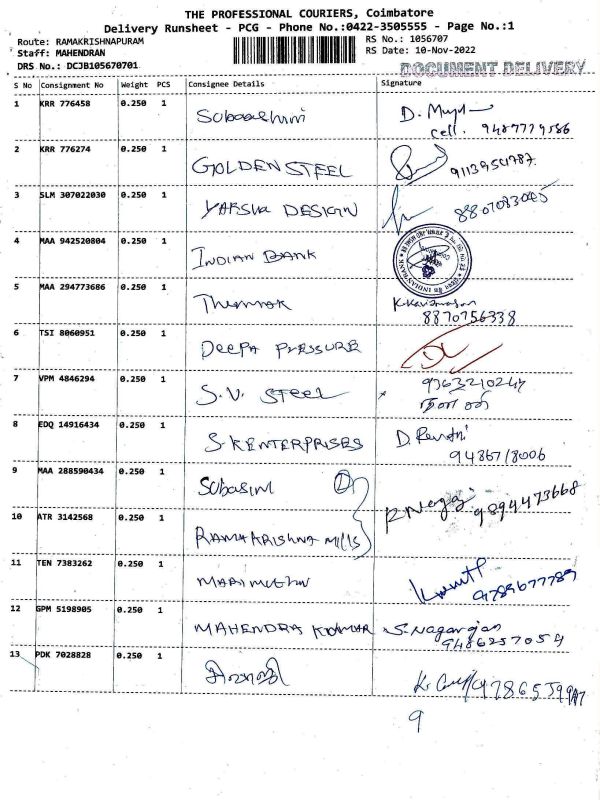 THE PROFESSIONAL COURIERS, Coimbatore
Delivery Runsheet - PCG - Phone No.:0422-3505555 - Page No.:1
Route: RAMAKRISHNAPURAM RS No.: 1056707
Staff: MAHENDRAN RS Date: 10-Nov-2022
DRS No.: DCJB105670701 DOCUMENT DELIVERY
S No Consignment No Weight PCS Consignee Details Signature
1 KRR 776458 0.250 1
cell. 9487779586
2 KRR 776274 0.250 1 GOLDEN STEEL
3 SLM 307022030 0.250 1 DESIGN
4 MAA 942520804 0.250 1 INDIAN BANK
5 MAA 294773686 0.250 1
8870756338
6 TSI 8060951 0.250 1 DEEPA PRESSURE
7 VPM 4846294 0.250 1 S.V. STEEL 9363210247
8 EDQ 14916434 0.250 1 S.K ENTERPRISES
9 MAA 288590434 0.250 1 SUBASINI
9894473668
10 ATR 3142568 0.250 1 RAMAKRISHNA Mills
11 TEN 7383262 0.250 1 MARIMUTHU
9789677789
12 GPM 5198905 0.250 1 MAHENDRA KUMAR S. Nagarajan
9486257054
13 PDK 7028828 0.250 1
9